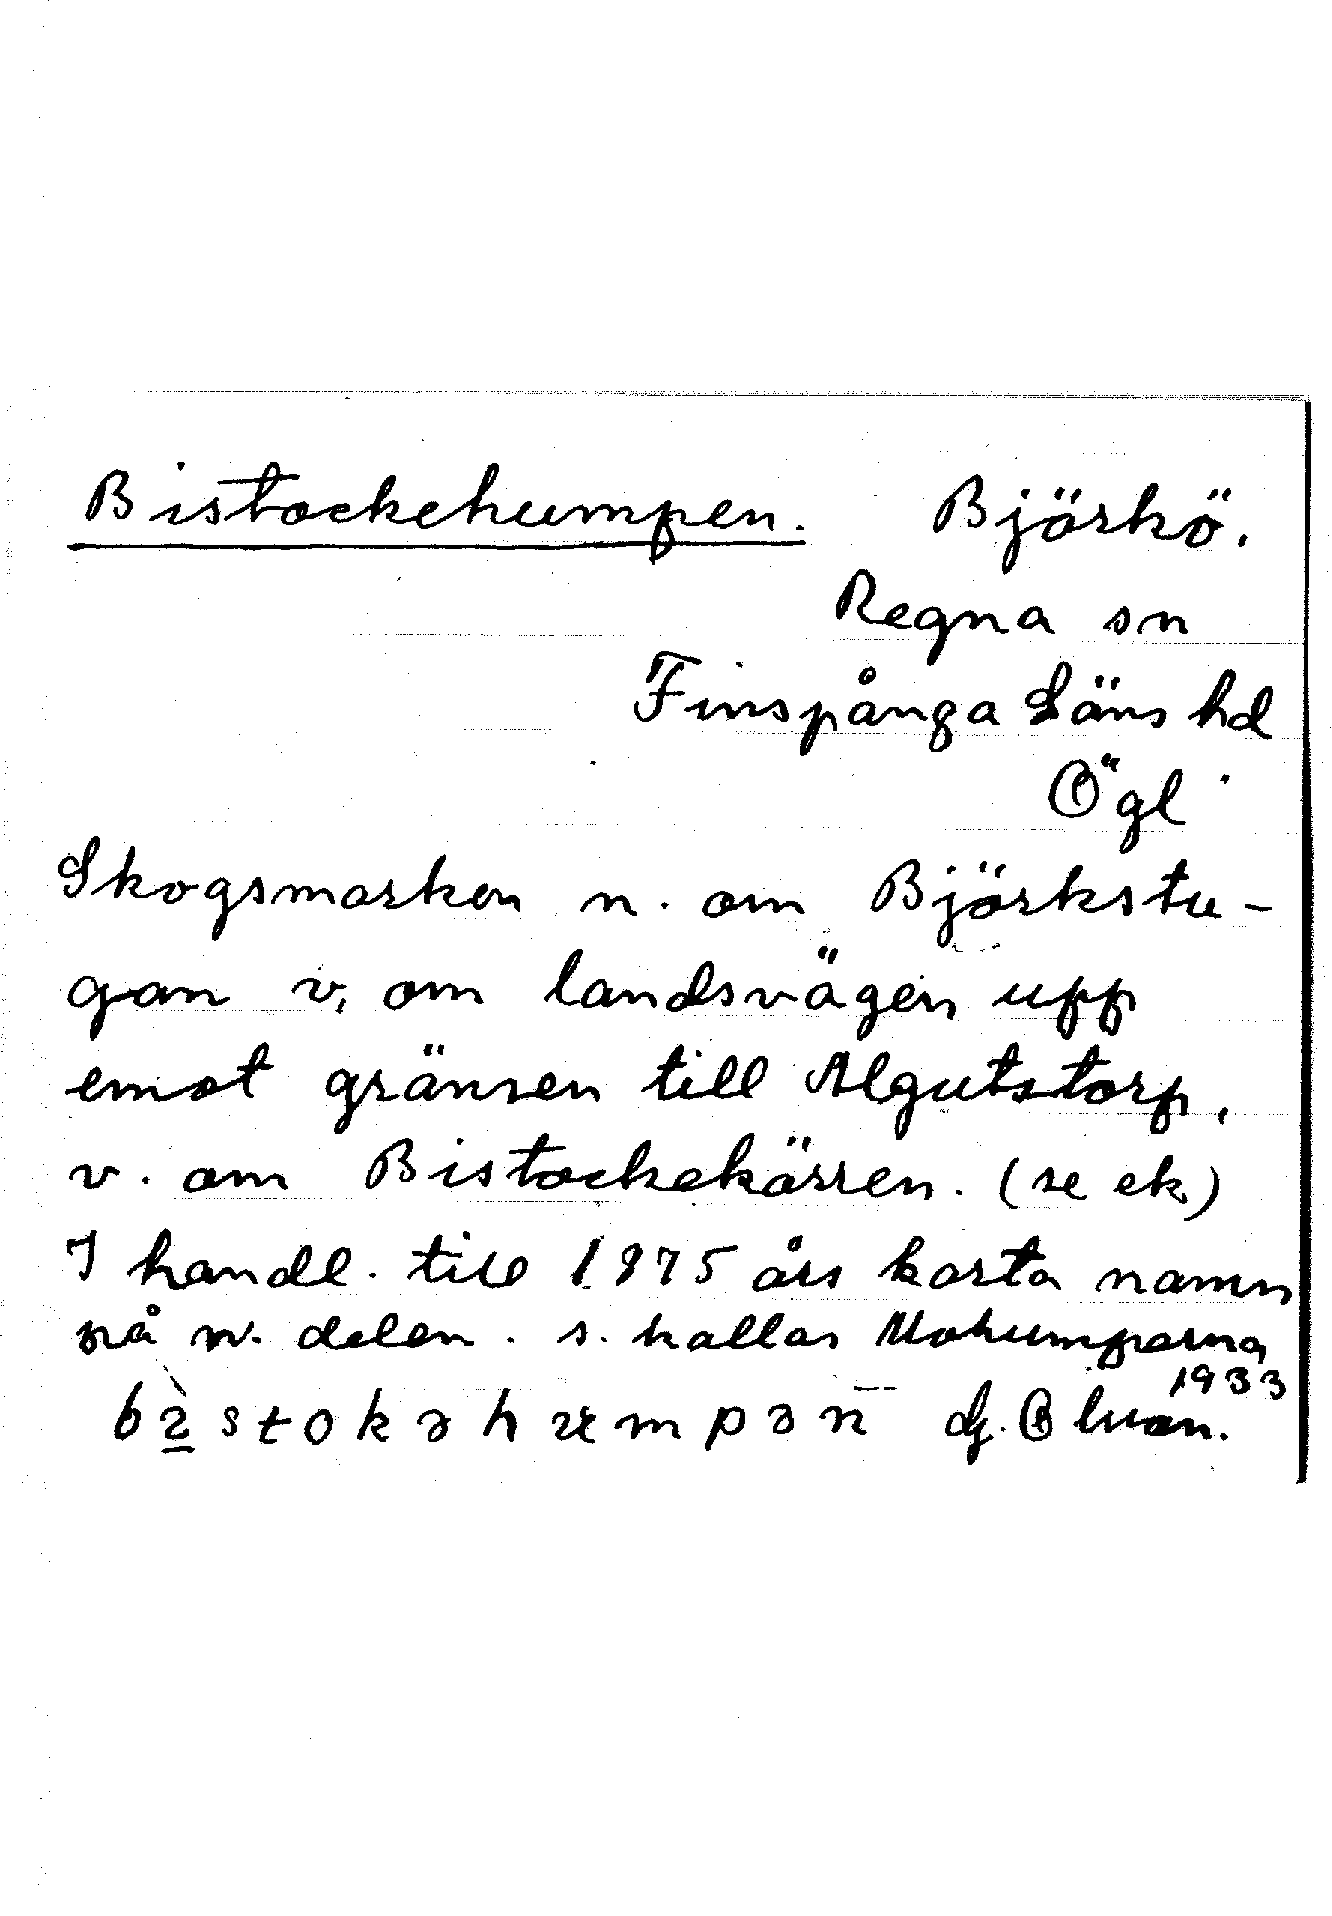 Bistockehumpen. Björkö.
Regna sn
Finspånga Läns hd
Ögl
Skogsmarken n. om Björkstu-
gan v. om landsvägen upp
emot gränsen till Algutstorp,
v. om Bistockekärren. (se ek)
I handl. till 1875 års karta namn
på n. delen. s. kallas Mohumparna
bistokəhumpən dj. B lvan. 1933